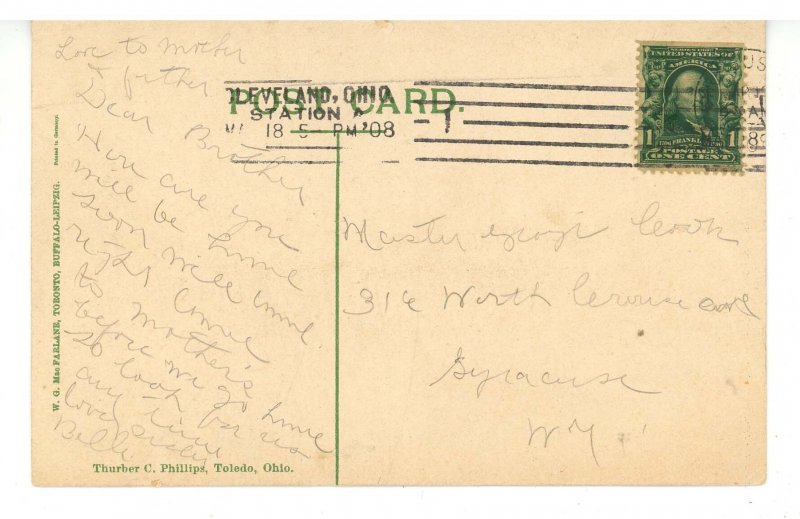 Love to Mother
& father
Dear Brother
How are you
will be home
soon will come
right come
to Mother's
before we go home
So look for us
any time
love
Belle
Printed in Germany.
W. G. MacFARLANE, TORONTO, BUFFALO-LEIPZIG.
POST CARD.
CLEVELAND, OHIO
STATION A
18 5- PM '08
1
SERIES 1902
UNITED STATES OF
AMERICA
FRANKLIN
POSTAGE
ONE CENT
1 1
Master
316 North Crouse
Syracuse
N Y
Thurber C. Phillips, Toledo, Ohio.